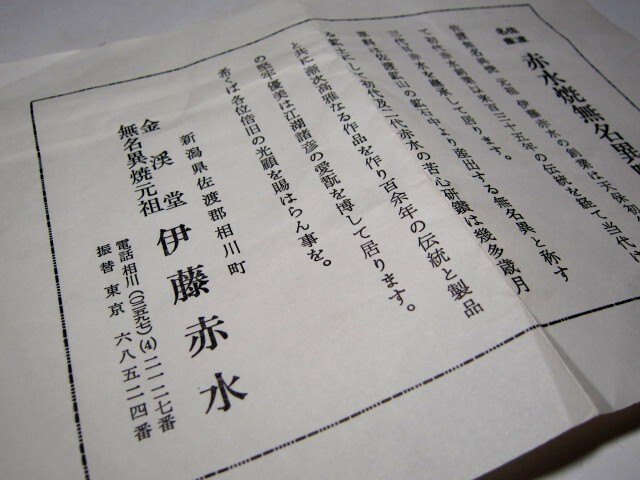 佐渡
名産
赤水焼無名異
佐渡無名異焼 元祖 伊藤赤水の創業は天保初
て初代赤水創業以来百三十五年の伝統を経て当代は
三代赤水を継承して居ります。
原料は佐渡鉱山の鉱石中より送出する無名異と称す
として初代及二代赤水の苦心研鑽は幾多歳月
と共に漸次高雅なる作品を作り百余年の伝統と製品
の堅牢優美は江湖諸彦の愛翫を博して居ります。
希くば各位倍旧の光顧を賜はらん事を。
新潟県佐渡郡相川町
金渓堂 伊藤赤水
無名異焼元祖
電話相川(〇二五九七)(4)二一二七番
振替東京 六八五二四番